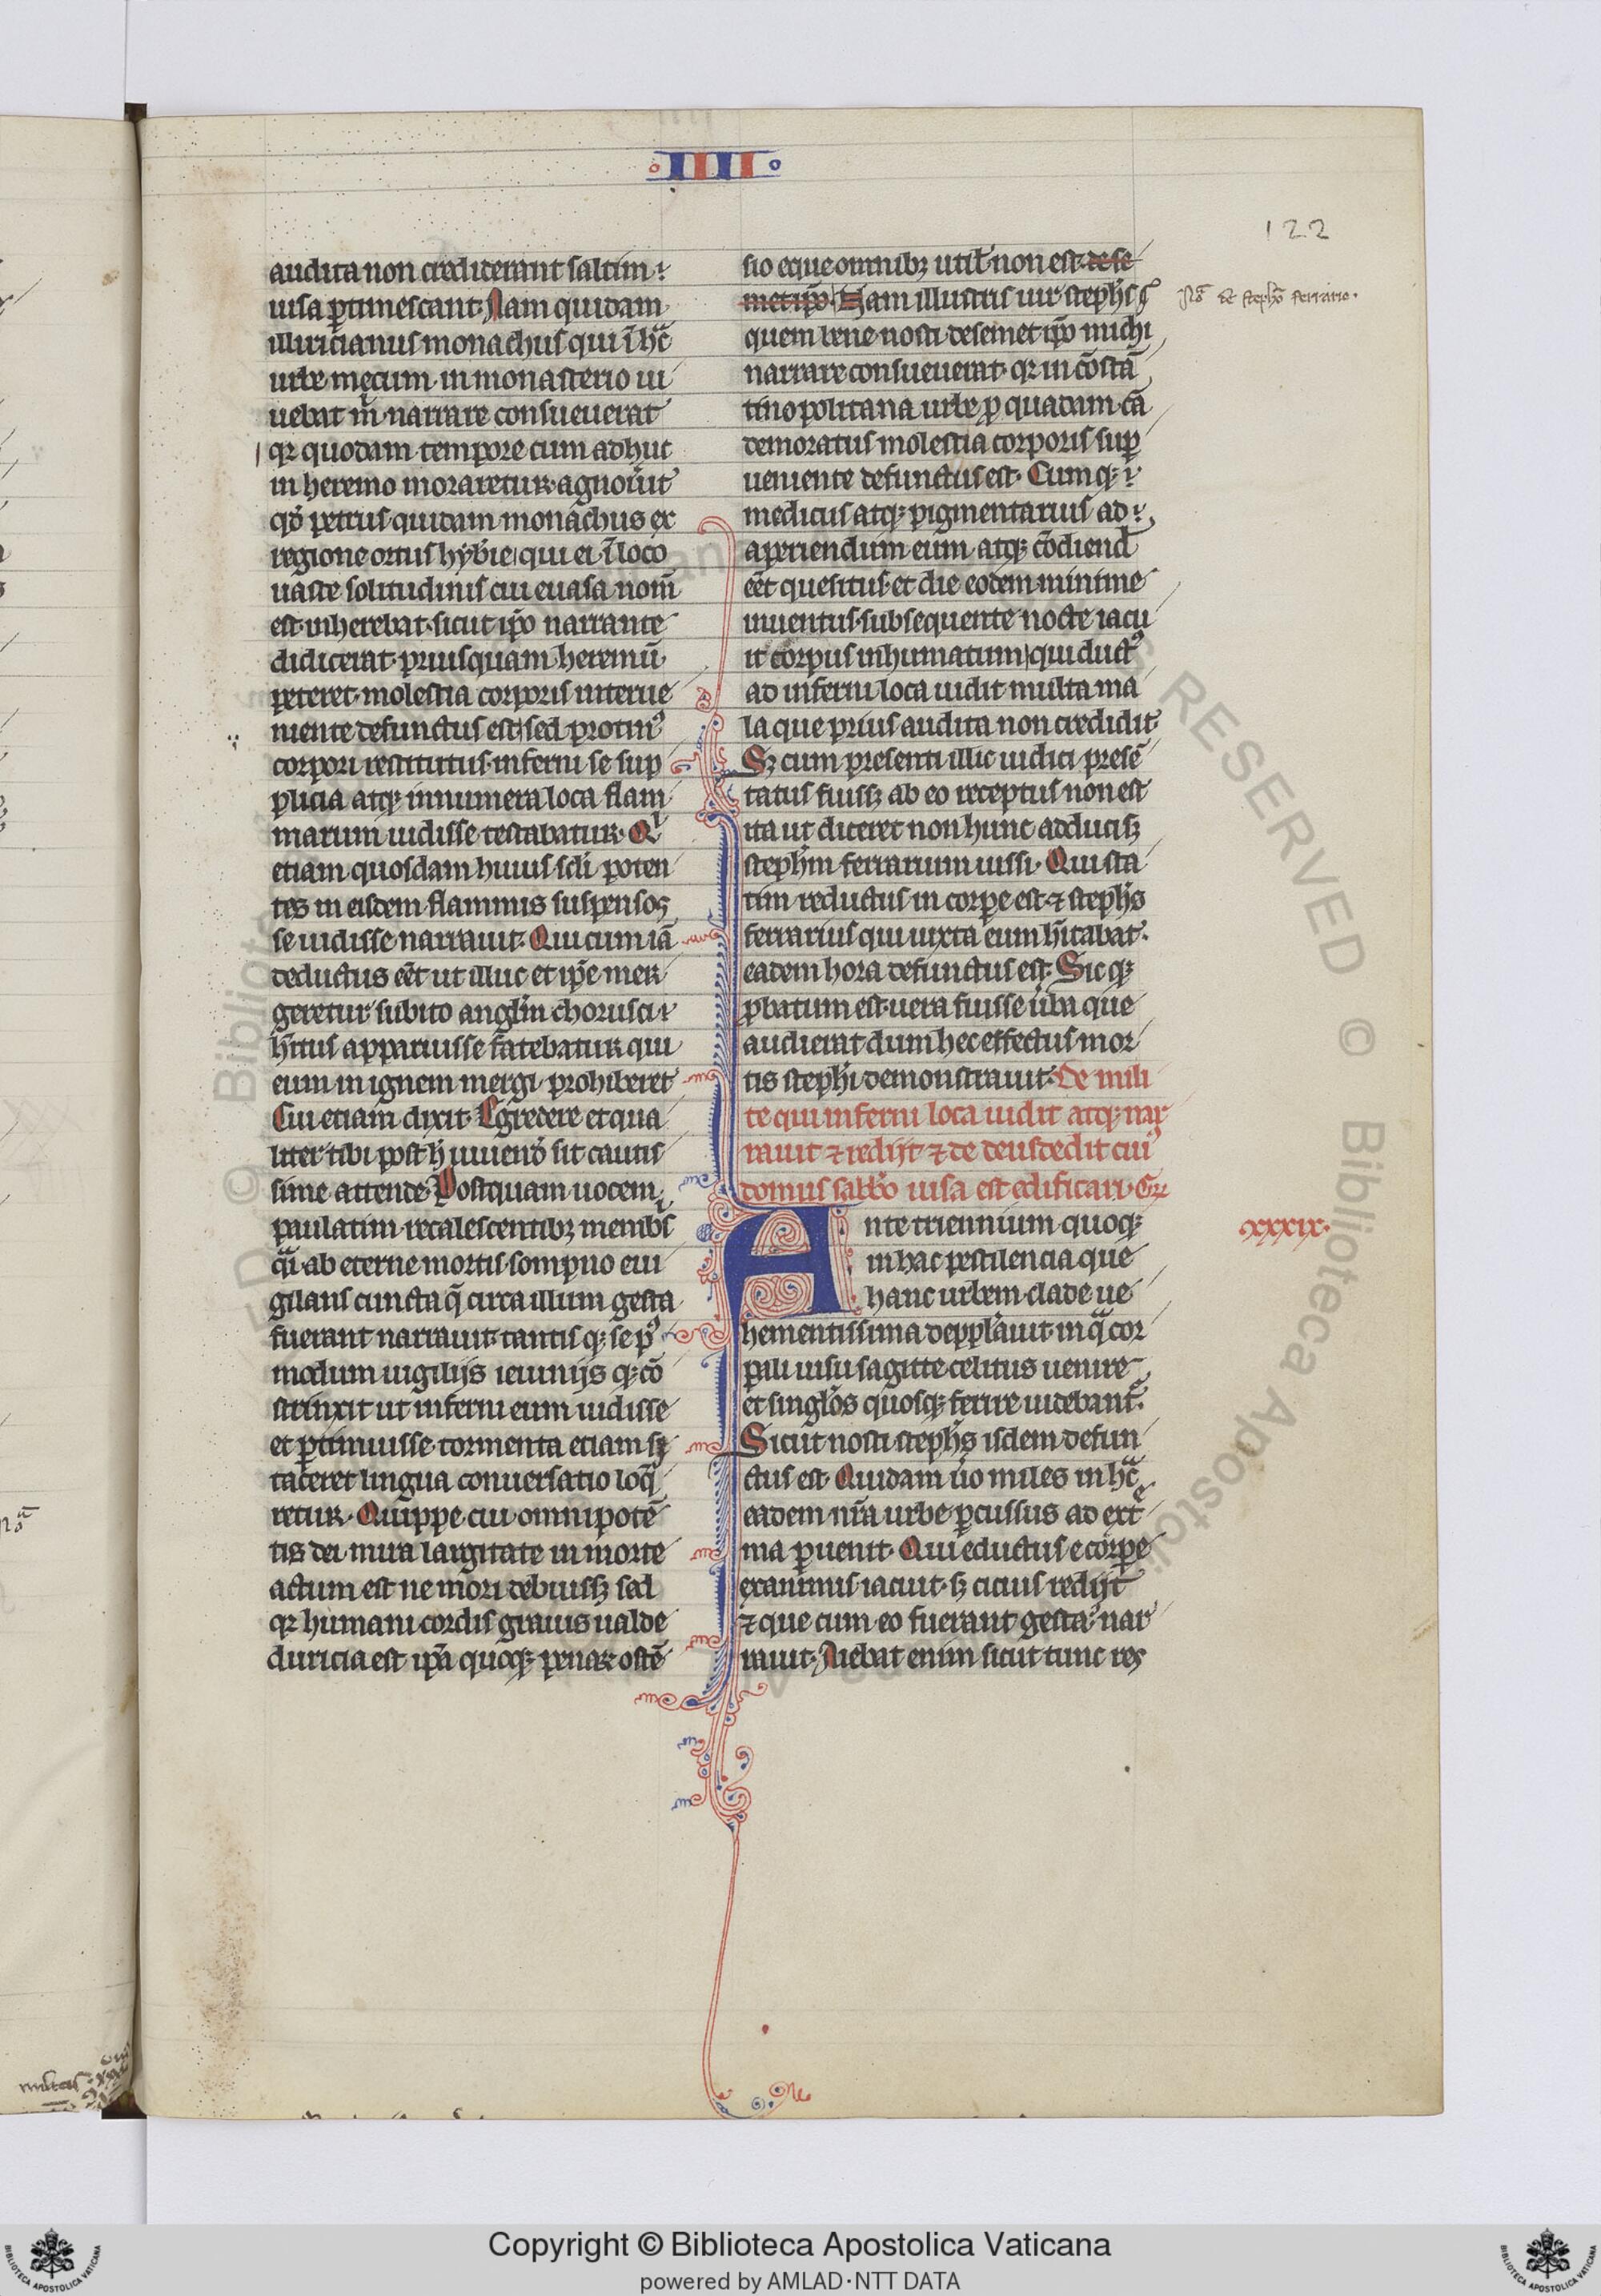 IIII
122
audita non crediderant saltim
uisa ꝑtimescant. Nam quidam
illuricianus monachus qui ī hͣc
urbe mecum in monasterio ui
uebat m̄ narrare consueuerat
qꝛ quodam tempore cum adhuc
in heremo moraretur agnouit
qd̓ petrus quidam monachus ex
regione ortus hyb̓ie qui ei ī loco
uaste solitudinis cui euasa nom̄
est inherebat sicut ip̄o narrante
didicerat priusquam heremū
peteret molestia corporis interue
niente defunctus est sed protinꝰ
corpori restitutus inferni se sup
plicia atqꝫ innumera loca flam
marum uidisse testabatur. Qͥ
etiam quosdam huius scl̓i poten
tes in eisdem flammis suspensos
se uidisse narrauit. Qui cum iā
deductus eēt ut illuc et ip̄e mer
geretur subito angl̓m chorusci
hītus apparuisse fatebatur qui
eum in ignem mergi prohiberet
Cui etiam dixit. Egredere et qua
liter tibi post h̓ uiuend̓ sit cautis
sime attende. Postquam uocem
paulatim recalescentibꝫ membͥs
qͣi ab eterne mortis sompno eui
gilans cuncta q̄ circa illum gesta
fuerant narrauit tantis qꝫ se pꝰ
modum uigilijs ieiunijs qꝫ cō
strinxit ut inferni eum uidisse
et ꝑtimuisse tormenta etiam sꝫ
taceret lingua conuersatio loq̄
retur. Quippe cui omnipotē
tis dei mira largitate in morte
actum est ne mori debuissꝫ sed
qꝛ humani cordis grauis ualde
duricia est ip̄a quoqꝫ penaꝝ ostē
sio eque omnibꝫ util̓ non est de se
met ip̄o. Nam illustris uir steph̓s
quem bene nosti de semet ip̄o michi
narrare consueuerat qꝛ in cōstā
tinopolitana urbe ꝓ quadam cā
demoratus molestia corporis suꝑ
ueniente defunctus est. Cumqꝫ
medicus atqꝫ pigmentarius ad
aperiendum eum atqꝫ cōdiend̄
eēt quesitus et die eodem minime
inuentus subsequente nocte iacu
it corpus inhumatum qui ductꝰ
ad inferni loca uidit multa ma
la que prius audita non credidit
Sꝫ cum presenti illic iudici presē
tatus fuissꝫ ab eo receptus non est
ita ut diceret non hunc adducisꝫ
steph̓m ferrarium iussi. Qui sta
tim reductus in corꝑe est ⁊ steph̓s
ferrarius qui iuxta eum hītabat
eadem hora defunctus est. Sic qꝫ
ꝓbatum est uera fuisse ūba que
audierat dum hec effectus mor
tis steph̓i demonstrauit. De mili
te qui inferni loca uidit atqꝫ nar
rauit ⁊ redijt ⁊ de deusdedit cuiꝰ
domus sabb̓o uisa est edificari. Gꝛ
Ante triennium quoqꝫ
in hac pestilencia que
hanc urbem clade ue
hementissima depp̄lauit in qͣ cor
pali uisu sagitte celitus uenire
et singl̓os quosqꝫ ferire uidebant᷑.
Sicut nosti steph̓s isdem defun
ctus est. Quidam ūo miles in hͣc
eadem nr̄a urbe ꝑcussus ad extͤ
ma ꝑuenit. Qui eductus e corꝑe
exanimis iacuit sꝫ cicius redijt
⁊ que cum eo fuerant gesta nar
rauit. Aiebat enim sicut tunc res
Nōͣ de steph̓o ferrario.
xxxix.
Copyright © Biblioteca Apostolica Vaticana
powered by AMLAD·NTT DATA
BIBLIOTECA APOSTOLICA VATICANA
BIBLIOTECA APOSTOLICA VATICANA